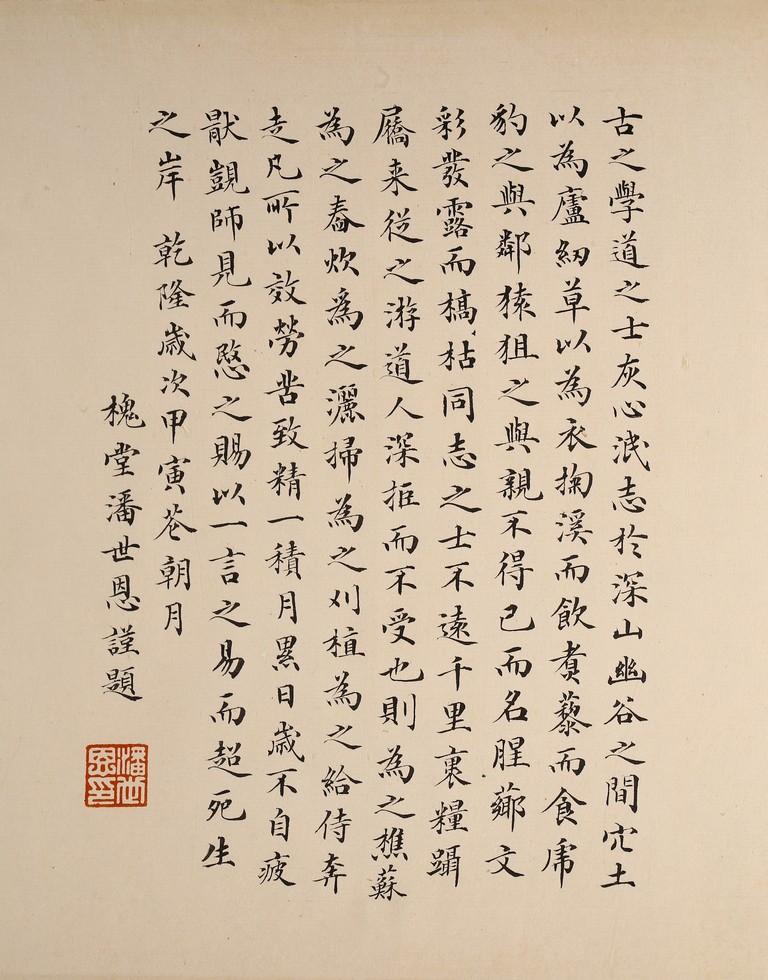 古之學道之士灰心泯志於深山幽谷之間穴土
以為廬紉草以為衣掬溪而飲煮藜而食虎
豹之與鄰猿狙之與親不得已而名腥薌文
彩發露而槁枯同志之士不遠千里裹糧躡
屩来從之游道人深拒而不受也則為之樵蘇
為之舂炊為之灑掃為之刈植為之給侍奔
走凡所以效勞苦致精一積月累日歲不自疲
猒覬師見而愍之賜以一言之易而超死生
之岸 乾隆歲次甲寅花朝月
槐堂潘世恩謹題
潘世恩印